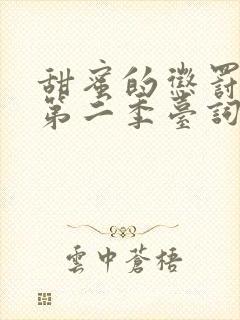 甜蜜的懲罰
第二季臺詞
雲中蒼梧